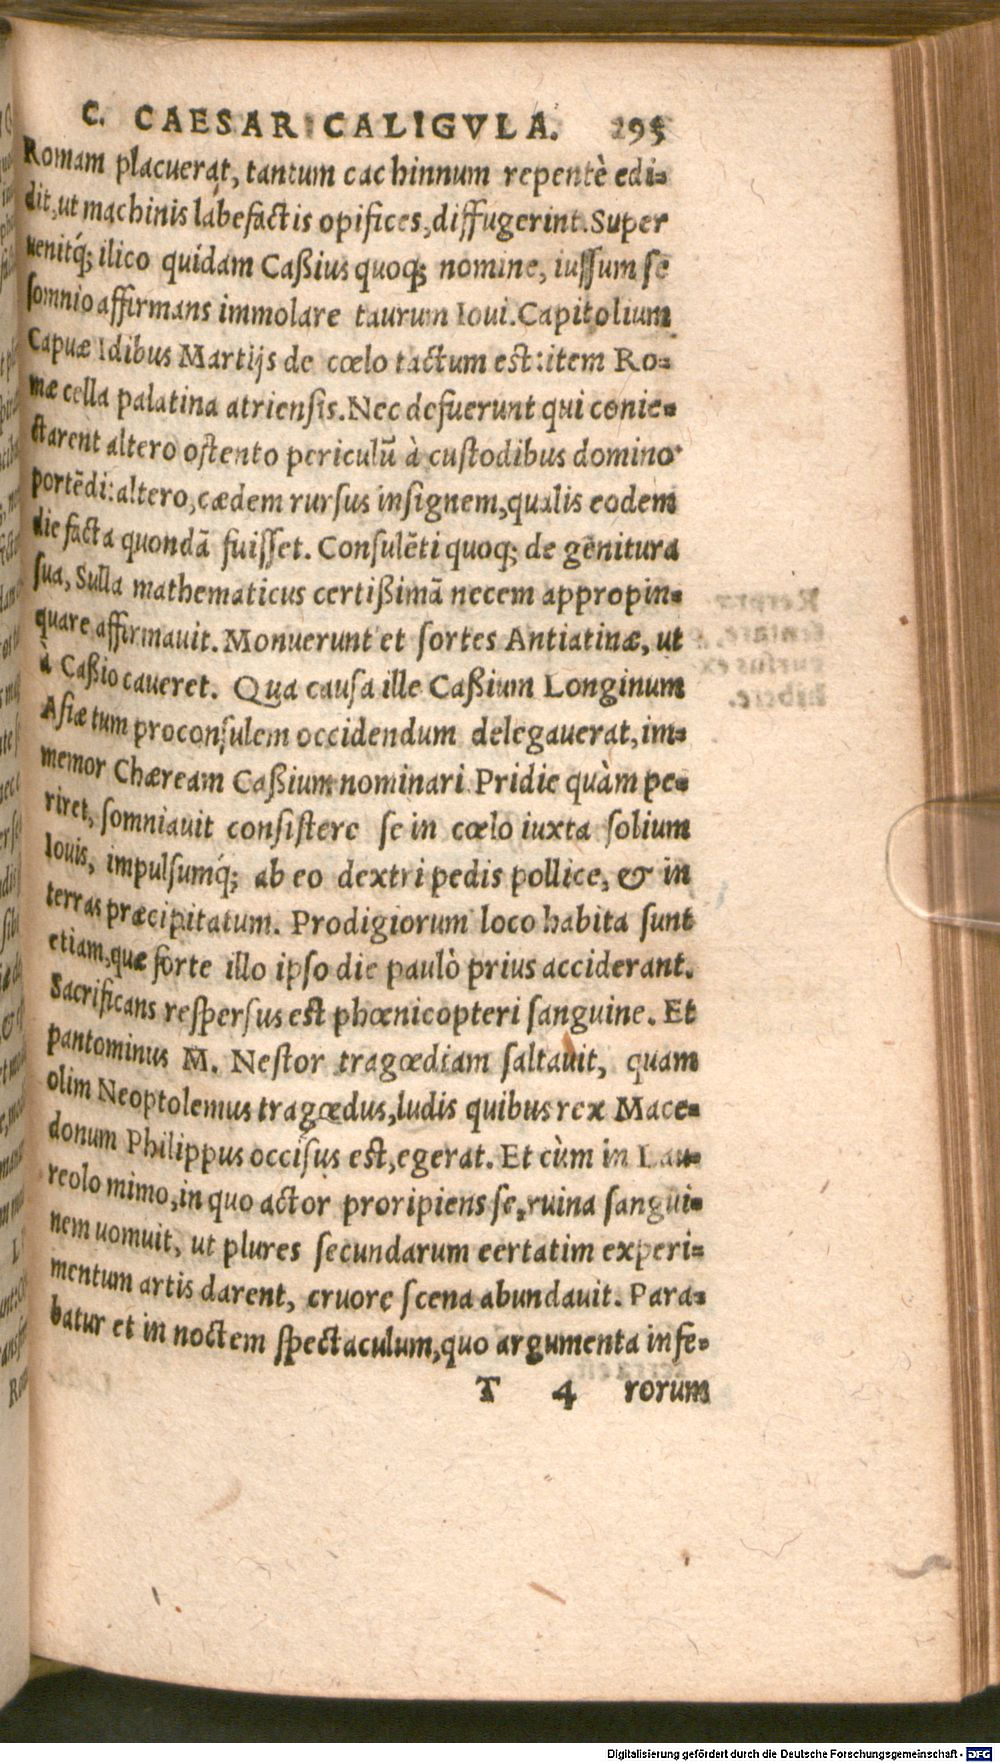 C. CAESAR CALIGVLA. 295
Romam placuerat, tantum cachinnum repentè edi-
dit, ut machinis labefactis opifices, diffugerint. Super
uenitq́; ilico quidam Caßius quoq; nomine, iussum se
somnio affirmans immolare taurum Ioui. Capitolium
Capuæ Idibus Martijs de cœlo tactum est: item Ro-
mæ cella palatina atriensis. Nec defuerunt qui conie-
ctarent altero ostento periculũ à custodibus domino
portẽdi: altero, cædem rursus insignem, qualis eodem
die facta quondã fuisset. Consulẽti quoq; de genitura
sua, Sulla mathematicus certißimã necem appropin-
quare affirmauit. Monuerunt et sortes Antiatinæ, ut
à Caßio caueret. Qua causa ille Caßium Longinum
Asiæ tum proconsulem occidendum delegauerat, im-
memor Chæream Caßium nominari. Pridie quàm pe-
riret, somniauit consistere se in cœlo iuxta solium
Iouis, impulsumq́; ab eo dextri pedis pollice, & in
terras præcipitatum. Prodigiorum loco habita sunt
etiam, quæ forte illo ipso die paulò prius acciderant.
Sacrificans respersus est phœnicopteri sanguine. Et
pantominus M. Nestor tragœdiam saltauit, quam
olim Neoptolemus tragœdus, ludis quibus rex Mace-
donum Philippus occisus est, egerat. Et cùm in Lau-
reolo mimo, in quo actor proripiens se, ruina sangui-
nem uomuit, ut plures secundarum certatim experi-
mentum artis darent, cruore scena abundauit. Para-
batur et in noctem spectaculum, quo argumenta infe-
T 4 rorum
Digitalisierung gefördert durch die Deutsche Forschungsgemeinschaft - DFG